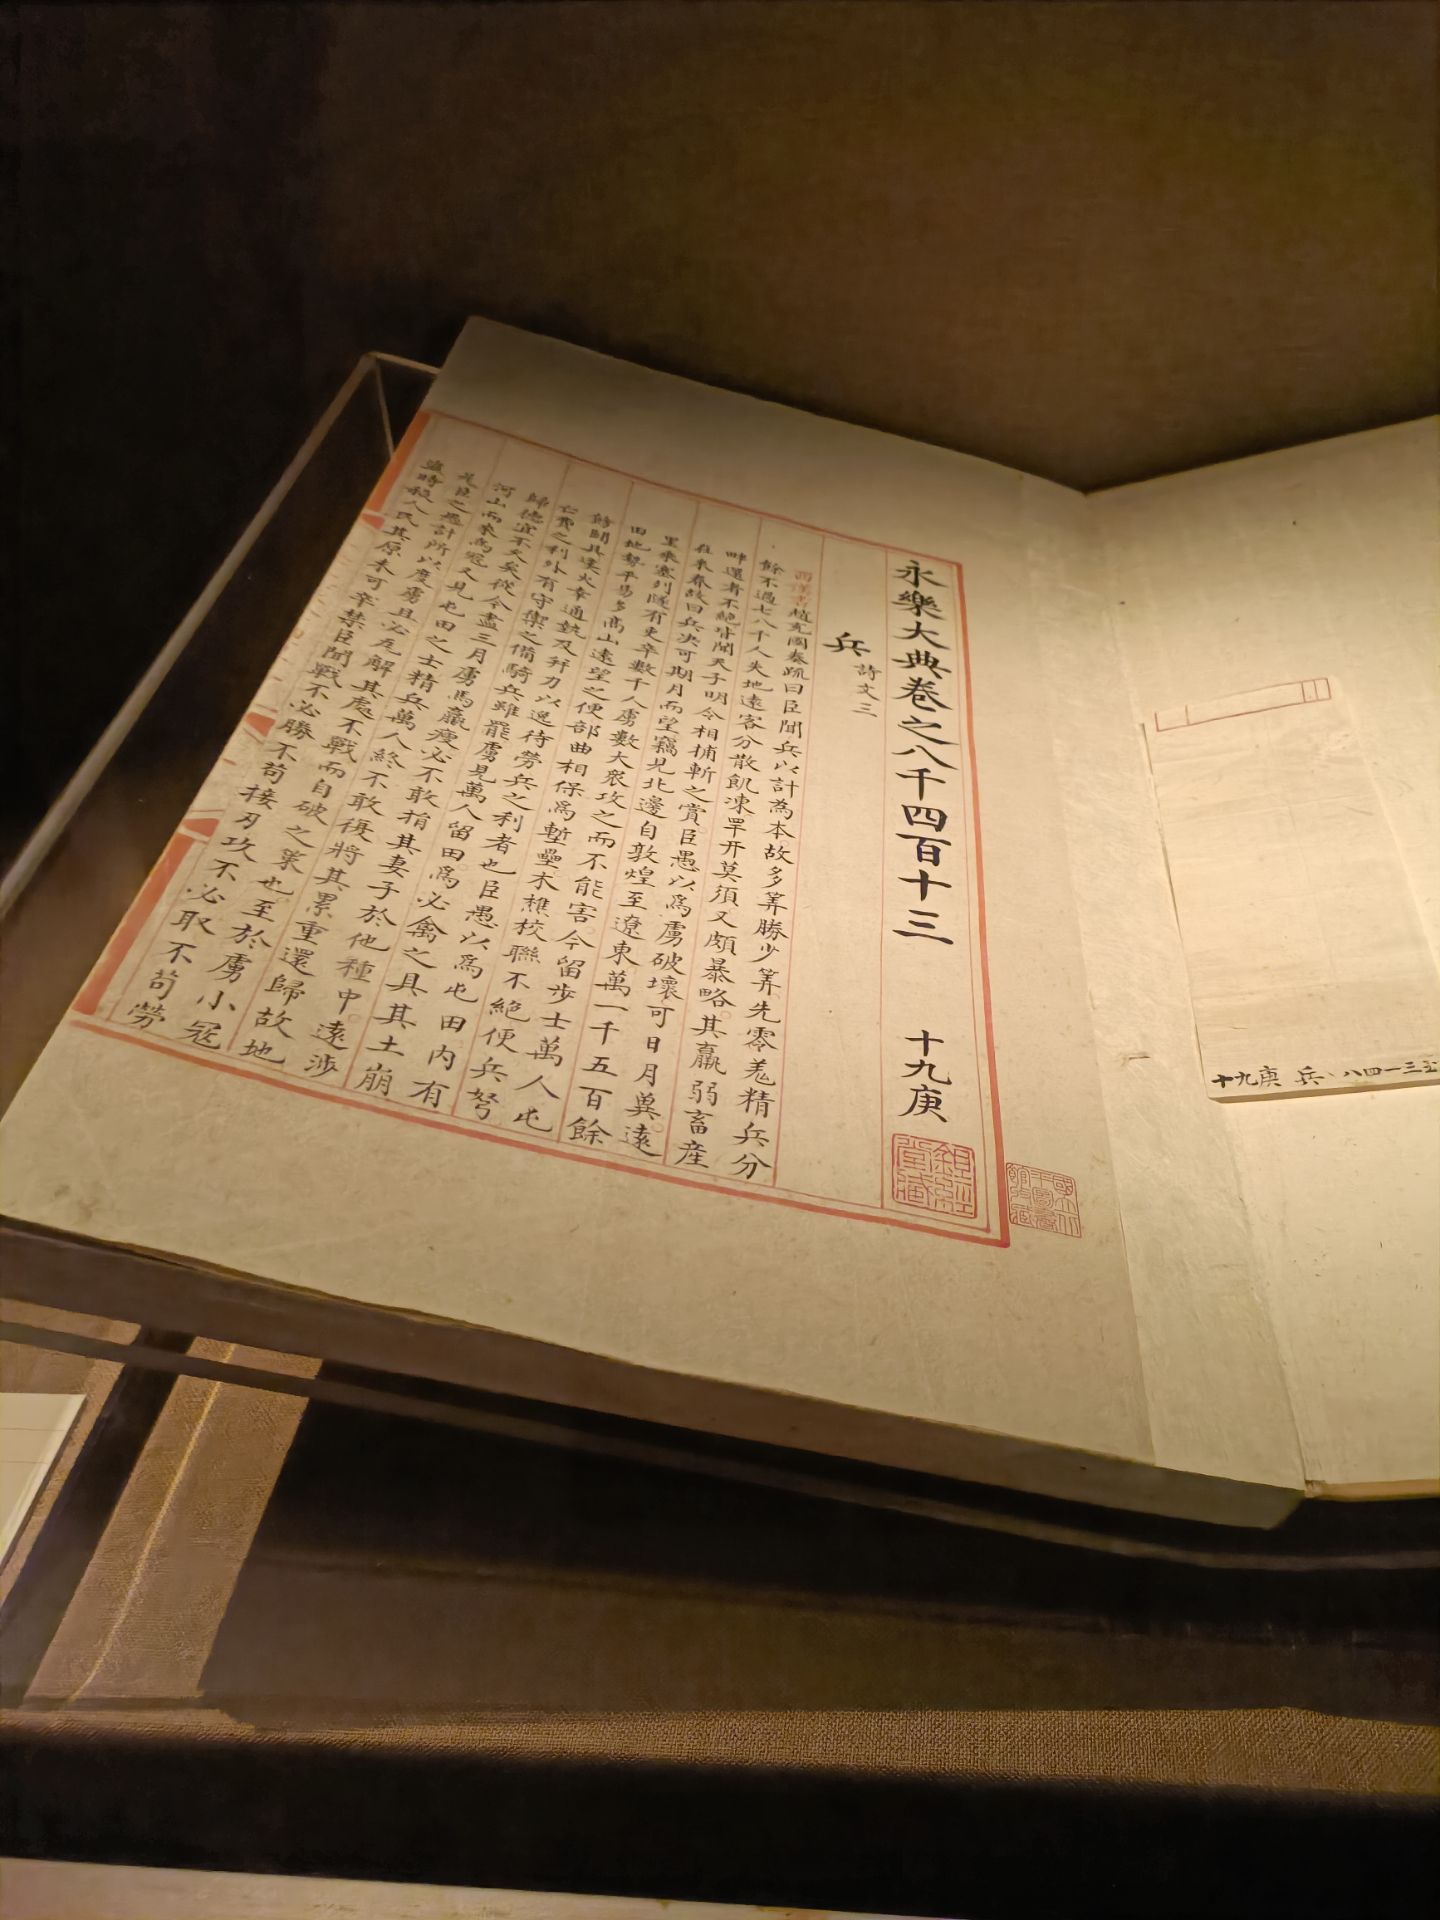 永樂大典卷之八千四百十三 十九庚
兵 詩文三
西漢書趙充國奏疏曰臣聞兵以計為本故多筭勝少筭先零羌精兵分
餘不過七八千人失地遠客分散飢凍罕开莫須又頗暴略其羸弱畜産
畔還者不絶皆聞天子明令相捕斬之賞臣愚以爲虜破壞可日月兾遠
在來春故曰兵决可期月而望竊見北邊自敦煌至遼東萬一千五百餘
里乘塞列隧有吏卒數千人虜數大衆攻之而不能害今留步士萬人屯
田地勢平易多高山遠望之便部曲相保爲塹壘木樵校聯不絶便兵弩
飭鬭具烽火幸通埶及幷力以逸待勞兵之利者也臣愚以爲屯田内有
亡費之利外有守禦之備騎兵雖罷虜見萬人留田爲必禽之具其土崩
歸德宜不久矣從今盡三月虜馬羸瘦必不敢捐其妻子於他種中遠涉
河山而來爲寇又見屯田之士精兵萬人終不敢復將其累重還歸故地
是臣之愚計所以度虜且必瓦解其處不戰而自破之策也至於虜小寇
盜時殺人民其原未可卒禁臣聞戰不必勝不苟接刃攻不必取不苟勞
十九庚 兵 八四一三至